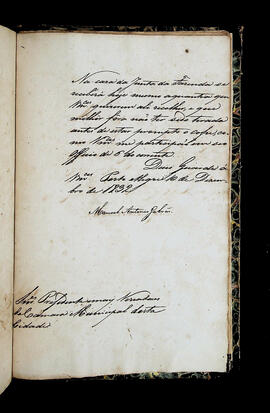 Na casa da Junta da Fazenda se
receberá hoje mesmo a quantia que
Vm.ces quizerem ali recolher, e que
melhor fora não ter sido tirada
antes de estar prompto o cofre, co-
mo Vm.ces me participão em seu
officio de 6 do corrente.
Deos Guarde a
Vm.ces Porto Alegre 10 de Dezem-
bro de 1832
Manoel Antonio Galvão
Snr.es Prezidente e mais Vereadores
da Camara Municipal desta
Cidade